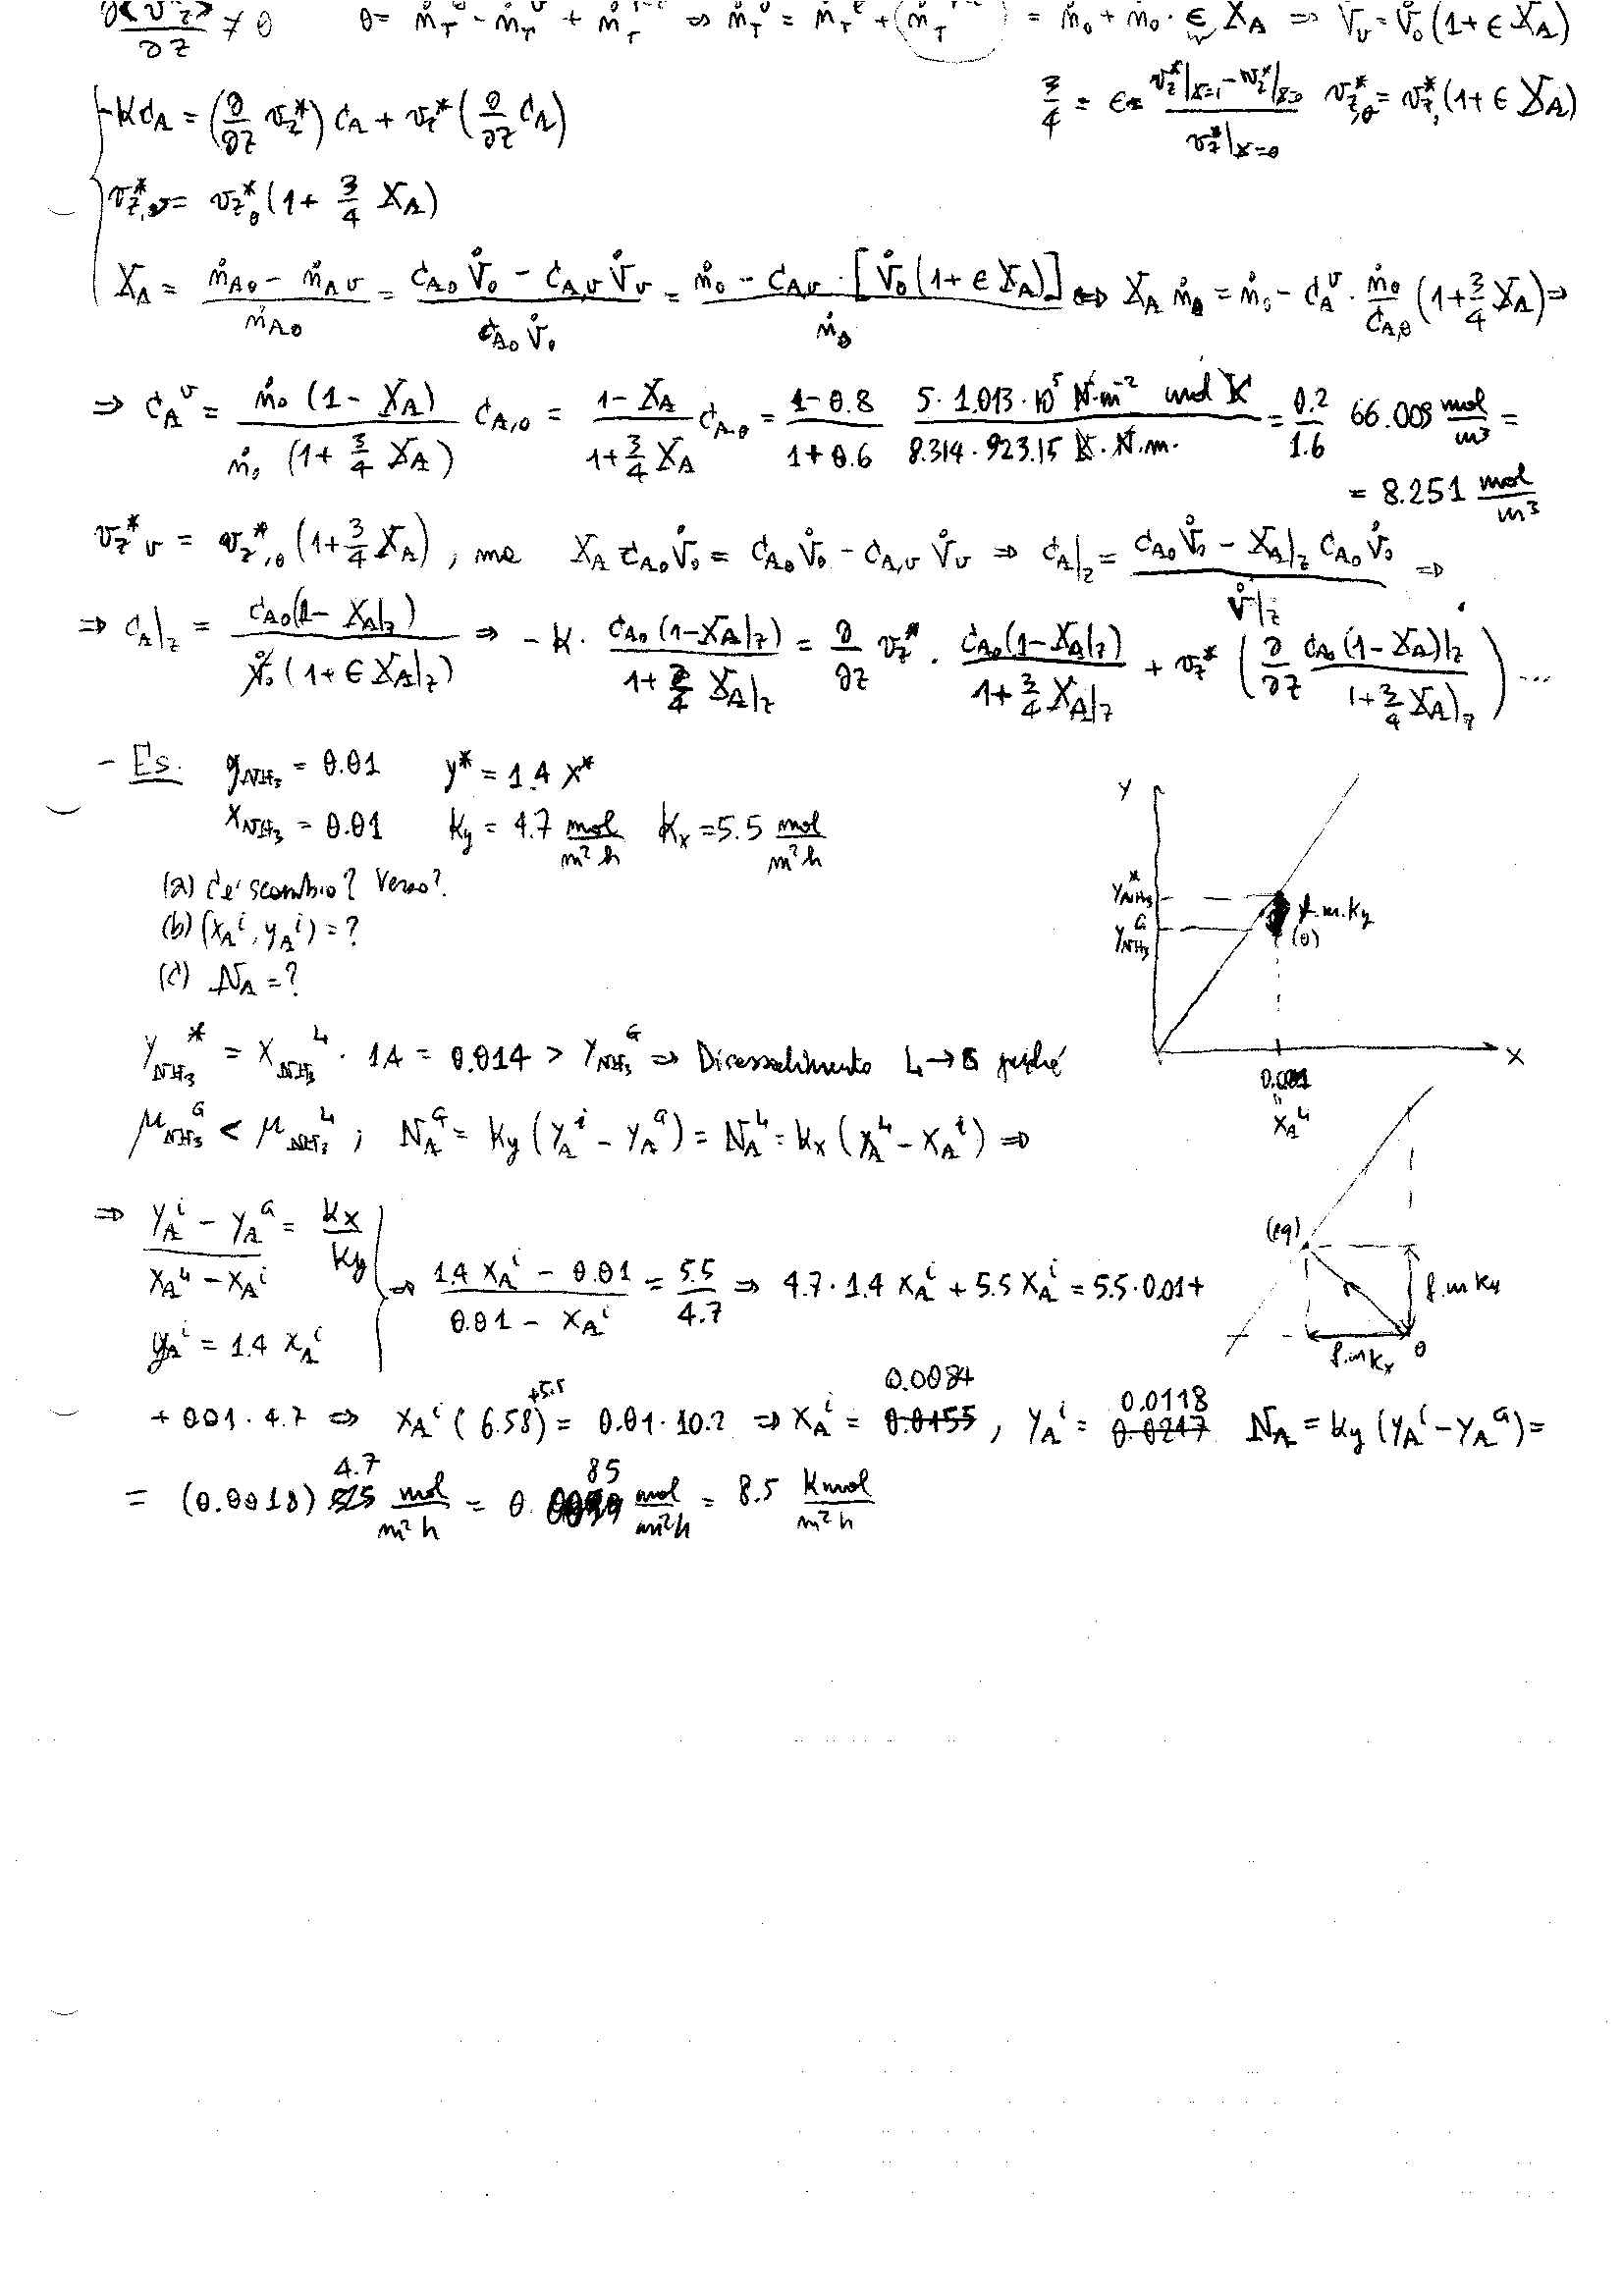 ∂⟨v_z⟩/∂z ≠ 0   0 = ṁ_T^e - ṁ_T^v + ṁ_T ⇒ ṁ_T^v = ṁ_T^e + (ṁ_T) = ṁ_0 + ṁ_0 · ϵ X_A ⇒ V̇_v = V̇_0 (1 + ϵ X_A)
-K C_A = (∂/∂z v_z*) C_A + v_z* (∂/∂z C_A)   3/4 = ϵ = (v_z*|_{X=1} - v_z*|_{X=0})/(v_z*|_{X=0})   v_{z,0}* = v_z*, (1 + ϵ X_A)
v_{z,v}* = v_{z,0}* (1 + 3/4 X_A)
X_A = (ṁ_{A0} - ṁ_{Av})/ṁ_{A0} = (C_{A0} V̇_0 - C_{A,v} V̇_v)/(C_{A0} V̇_0) = (ṁ_0 - C_{Av} · [V̇_0 (1 + ϵ X_A)])/ṁ_0 ⇔ X_A ṁ_0 = ṁ_0 - C_A^v · ṁ_0/C_{A,0} (1 + 3/4 X_A) ⇒
⇒ C_A^v = (ṁ_0 (1 - X_A))/(ṁ_0 (1 + 3/4 X_A)) C_{A,0} = (1 - X_A)/(1 + 3/4 X_A) C_{A0} = (1 - 0.8)/(1 + 0.6) (5 · 1.013 · 10^5 N·m^-2 mol K)/(8.314 · 923.15 K · N·m.) = 0.2/1.6 66.009 mol/m³ =
= 8.251 mol/m³
v_z*^v = v_{z,0}* (1 + 3/4 X_A), ma X_A C_{A0} V̇_0 = C_{A0} V̇_0 - C_{A,v} V̇_v ⇒ C_A|_z = (C_{A0} V̇_0 - X_A|_z C_{A0} V̇_0)/V̇|_z ⇒
⇒ C_A|_z = (C_{A0} (1 - X_A|_z))/(V̇_0 (1 + ϵ X_A|_z)) ⇒ -K · (C_{A0} (1 - X_A|_z))/(1 + 3/4 X_A|_z) = ∂/∂z v_z* · (C_{A0} (1 - X_A|_z))/(1 + 3/4 X_A|_z) + v_z* (∂/∂z (C_{A0} (1 - X_A)|_z)/(1 + 3/4 X_A)|_z) ...
- Es. y_{NH3} = 0.01   y* = 1.4 x*
x_{NH3} = 0.01   Ky = 4.7 mol/m²h   Kx = 5.5 mol/m²h
(a) C'è scambio? Verso?
(b) (x_A^i, y_A^i) = ?
(c) N_A = ?
Y
Y_{NH3}*
f.m.Ky
Y_{NH3}^G
(0)
X
X_A^L
y_{NH3}* = x_{NH3}^L · 1.4 = 0.014 > y_{NH3}^G ⇒ Disassorbimento L → G perché
μ_{NH3}^G < μ_{NH3}^L ; N_A^G = Ky (y_A^i - y_A^G) = N_A^L = Kx (x_A^L - x_A^i) ⇒
⇒ (y_A^i - y_A^G)/(x_A^L - x_A^i) = Kx/Ky
y_A^i = 1.4 x_A^i
⇒ (1.4 x_A^i - 0.01)/(0.01 - x_A^i) = 5.5/4.7 ⇒ 4.7 · 1.4 x_A^i + 5.5 x_A^i = 5.5 · 0.01 +
(eq)
f.m Ky
f.m Kx
0
+ 0.01 · 4.7 ⇒ x_A^i (6.58 +5.5) = 0.01 · 10.2 ⇒ x_A^i = 0.0155 0.0084, y_A^i = 0.0217 0.0118   N_A = Ky (y_A^i - y_A^G) =
= (0.0018) 4.7 mol/m²h = 0. 85 mol/m²h = 8.5 Kmol/m²h